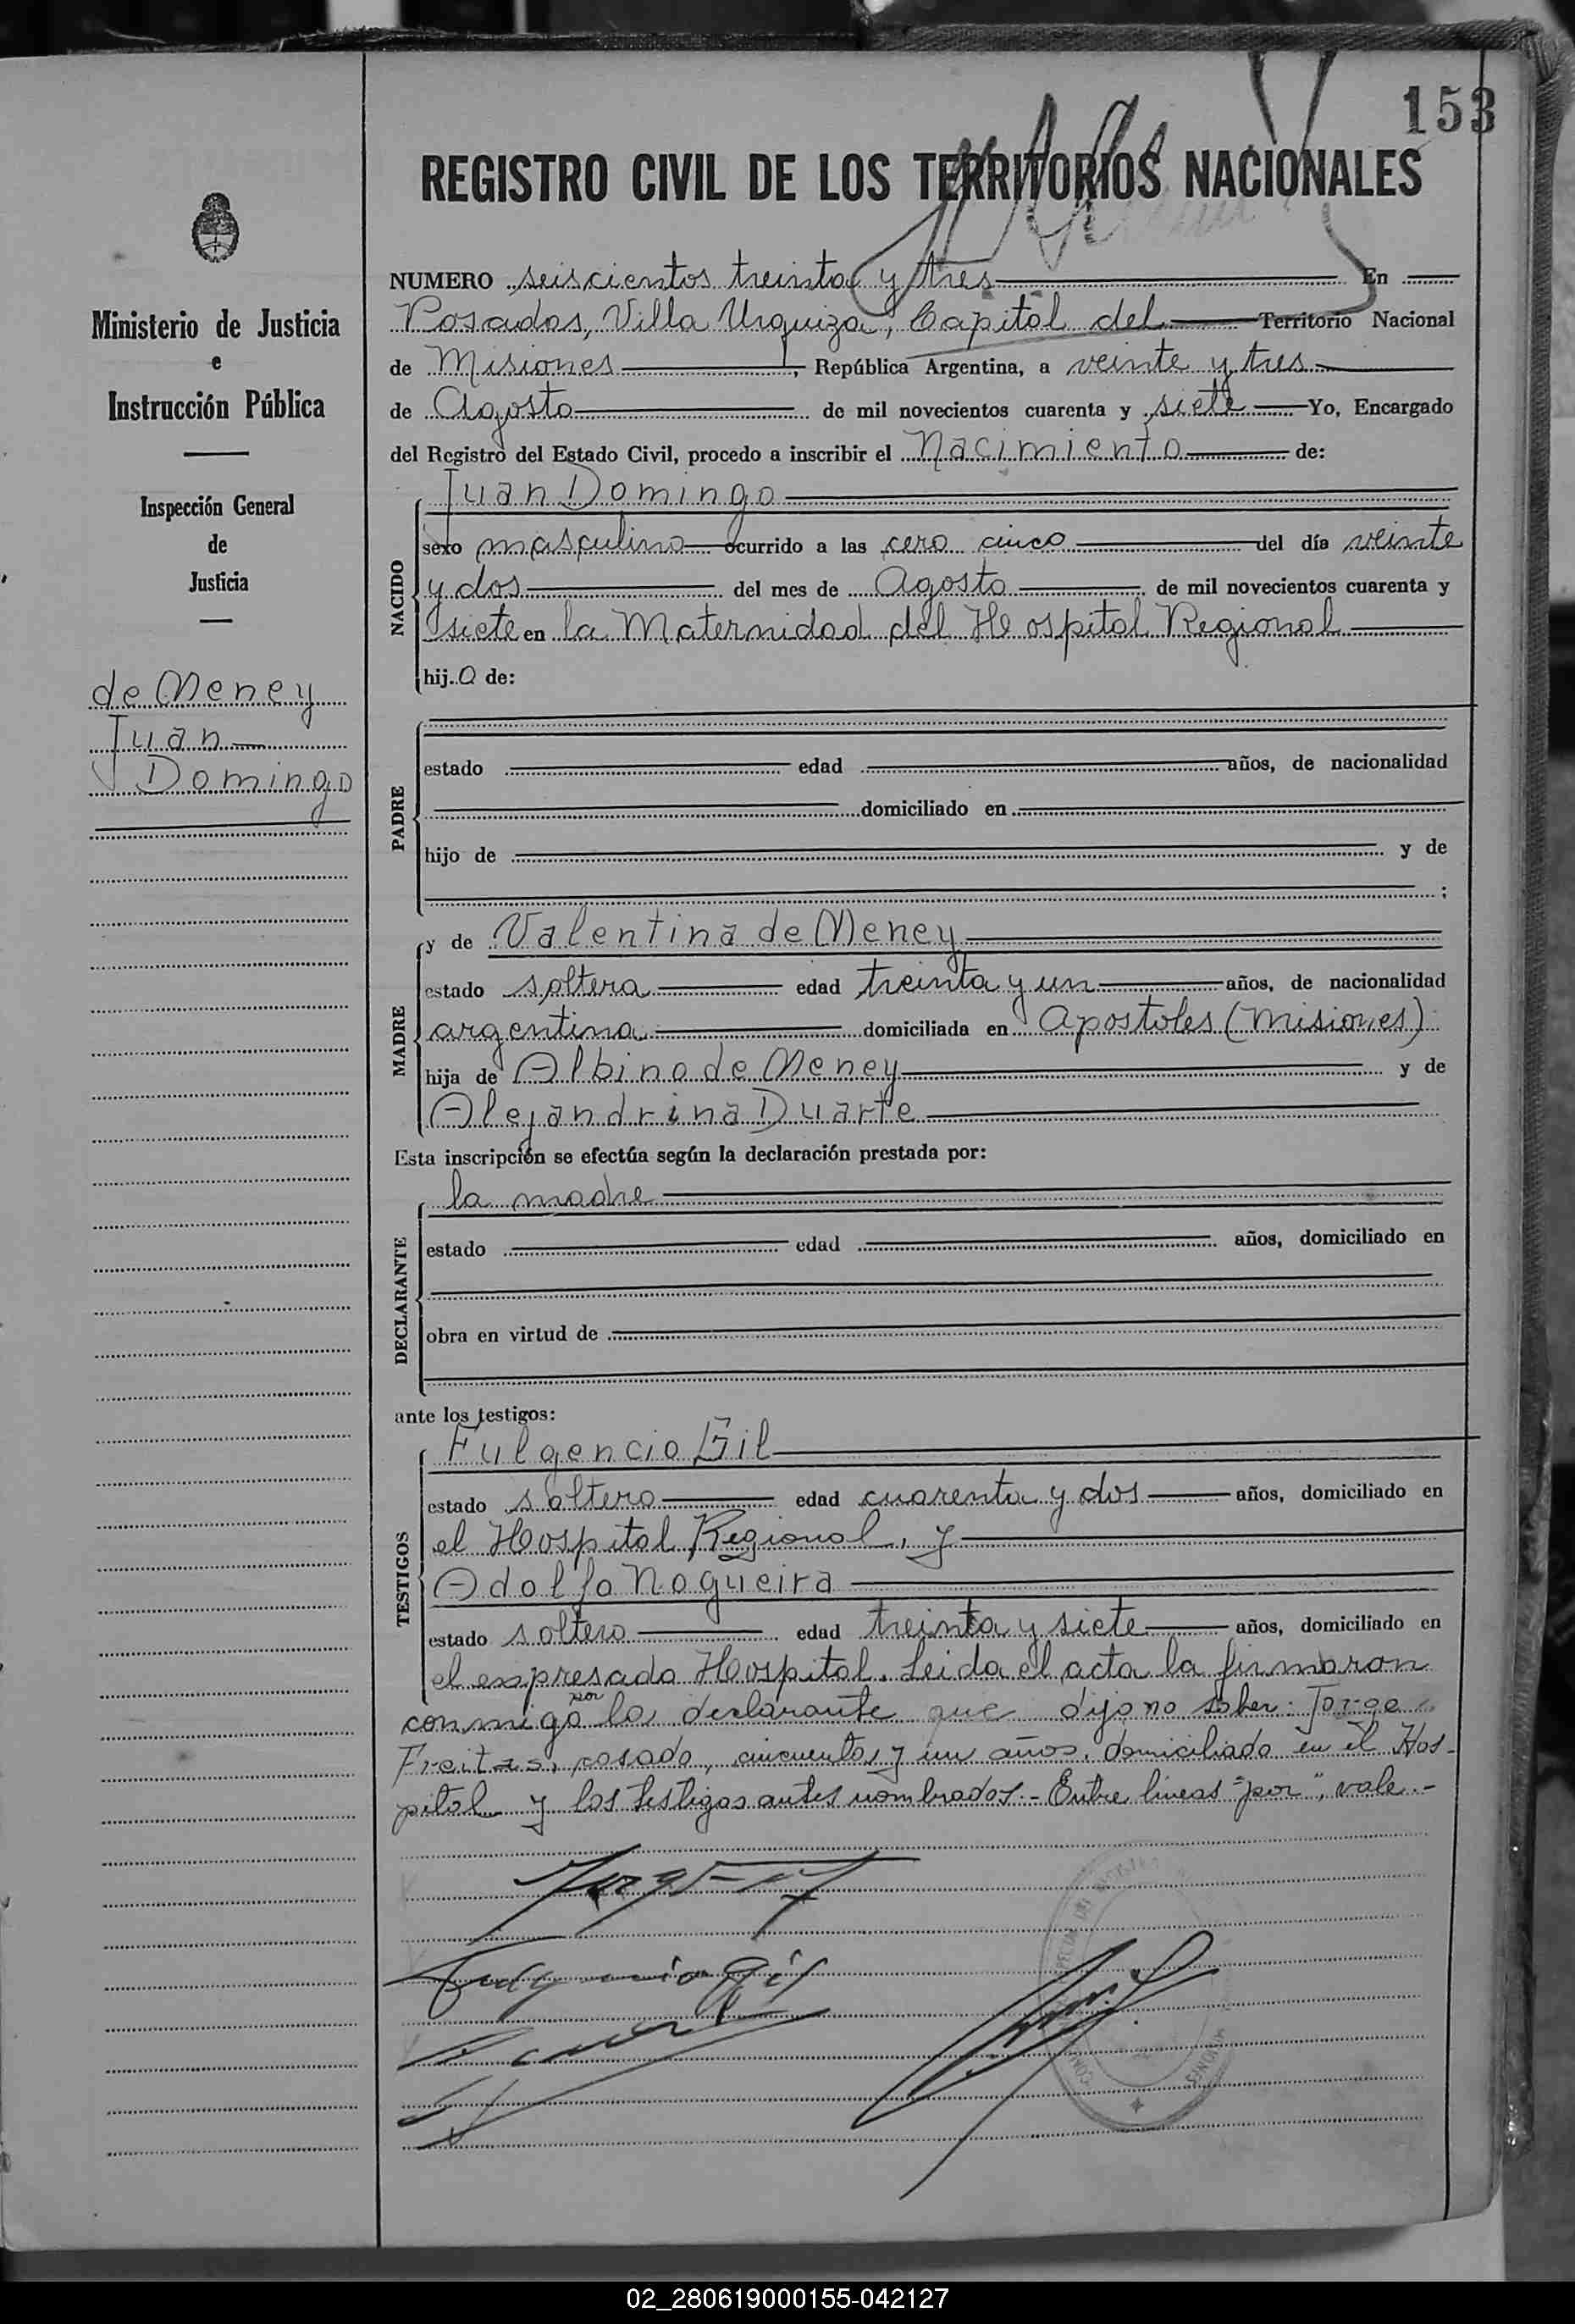 153
REGISTRO CIVIL DE LOS TERRITORIOS NACIONALES
Ministerio de Justicia
e
Instrucción Pública
Inspección General
de
Justicia
de Meney
Juan
Domingo
NUMERO seiscientos treinta y tres En
Posadas, Villa Urquiza, Capital del Territorio Nacional
de Misiones, República Argentina, a veinte y tres
de Agosto de mil novecientos cuarenta y siete Yo, Encargado
del Registro del Estado Civil, procedo a inscribir el Nacimiento de:
NACIDO
Juan Domingo
sexo masculino ocurrido a las cero cinco del día veinte
y dos del mes de Agosto de mil novecientos cuarenta y
siete en la Maternidad del Hospital Regional
hijo de:
PADRE
estado edad años, de nacionalidad
domiciliado en
hijo de y de
;
MADRE
y de Valentina de Meney
estado soltera edad treinta y un años, de nacionalidad
argentina domiciliada en Apostoles (Misiones)
hija de Albino de Meney y de
Alejandrina Duarte
Esta inscripción se efectúa según la declaración prestada por:
DECLARANTE
la madre
estado edad años, domiciliado en
obra en virtud de
ante los testigos:
TESTIGOS
Fulgencio Gil
estado soltero edad cuarenta y dos años, domiciliado en
el Hospital Regional, y
Adolfo Nogueira
estado soltero edad treinta y siete años, domiciliado en
el expresado Hospital. Leida el acta la firmaron
conmigo por la declarante que dijo no saber: Jorge
Freitas, casado, cincuenta y un años, domiciliado en el Hos-
pital y los testigos antes nombrados.- Entre lineas "por", vale.-
Fulgencio Gil
MISIONES
02_280619000155-042127